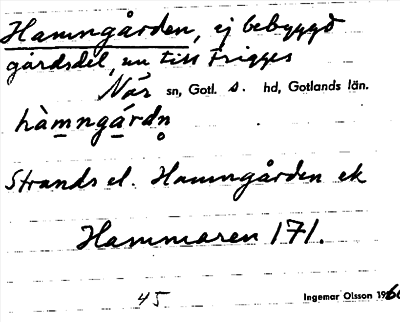 Hamngården, ej bebyggd
gårdsdel, nu till Frigges
När sn, Gotl. s. hd, Gotlands län.
hàmngárdn̥
Strands el. Hamngården ek
Hammaren 171.
45 Ingemar Olsson 1960